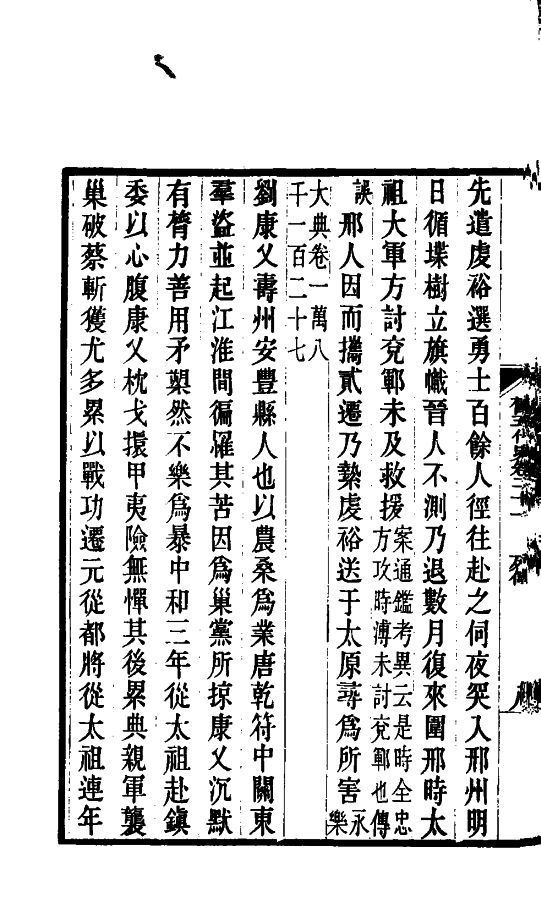 先遣虔裕選勇士百餘人徑往赴之伺夜突入邢州明
日循堞樹立旗幟晉人不測乃退數月復來圍邢時太
祖大軍方討兗鄆未及救援案通鑑考異云是時全忠方攻時溥未討兗鄆也傳
誤邢人因而攜貳遷乃縶虔裕送于太原尋爲所害永樂
大典卷一萬八千一百二十七
劉康乂壽州安豐縣人也以農桑爲業唐乾符中關東
羣盜並起江淮間偏罹其苦因爲巢黨所掠康乂沉默
有膂力善用矛槊然不樂爲暴中和三年從太祖赴鎮
委以心腹康乂枕戈擐甲夷險無憚其後累典親軍襲
巢破蔡斬獲尤多累以戰功遷元從都將從太祖連年